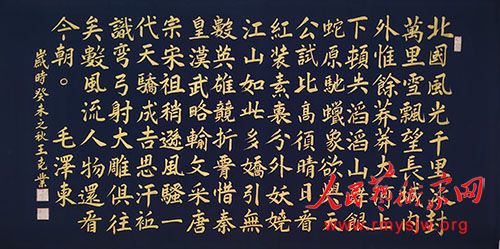 北國風光千里冰封
萬里雪飄望長城內
外惟餘莽莽大河上
下頓失滔滔山舞銀
蛇原馳蠟象欲與天
公試比高須晴日看
紅裝素裹分外妖嬈
江山如此多嬌引無
數英雄競折腰惜秦
皇漢武略輸文采唐
宗宋祖稍遜風騷一
代天驕成吉思汗祗
識彎弓射大雕俱往
矣數風流人物還看
今朝。 毛澤東
歲時癸未之秋王克
人民藝術家网
www.rmysjw.org